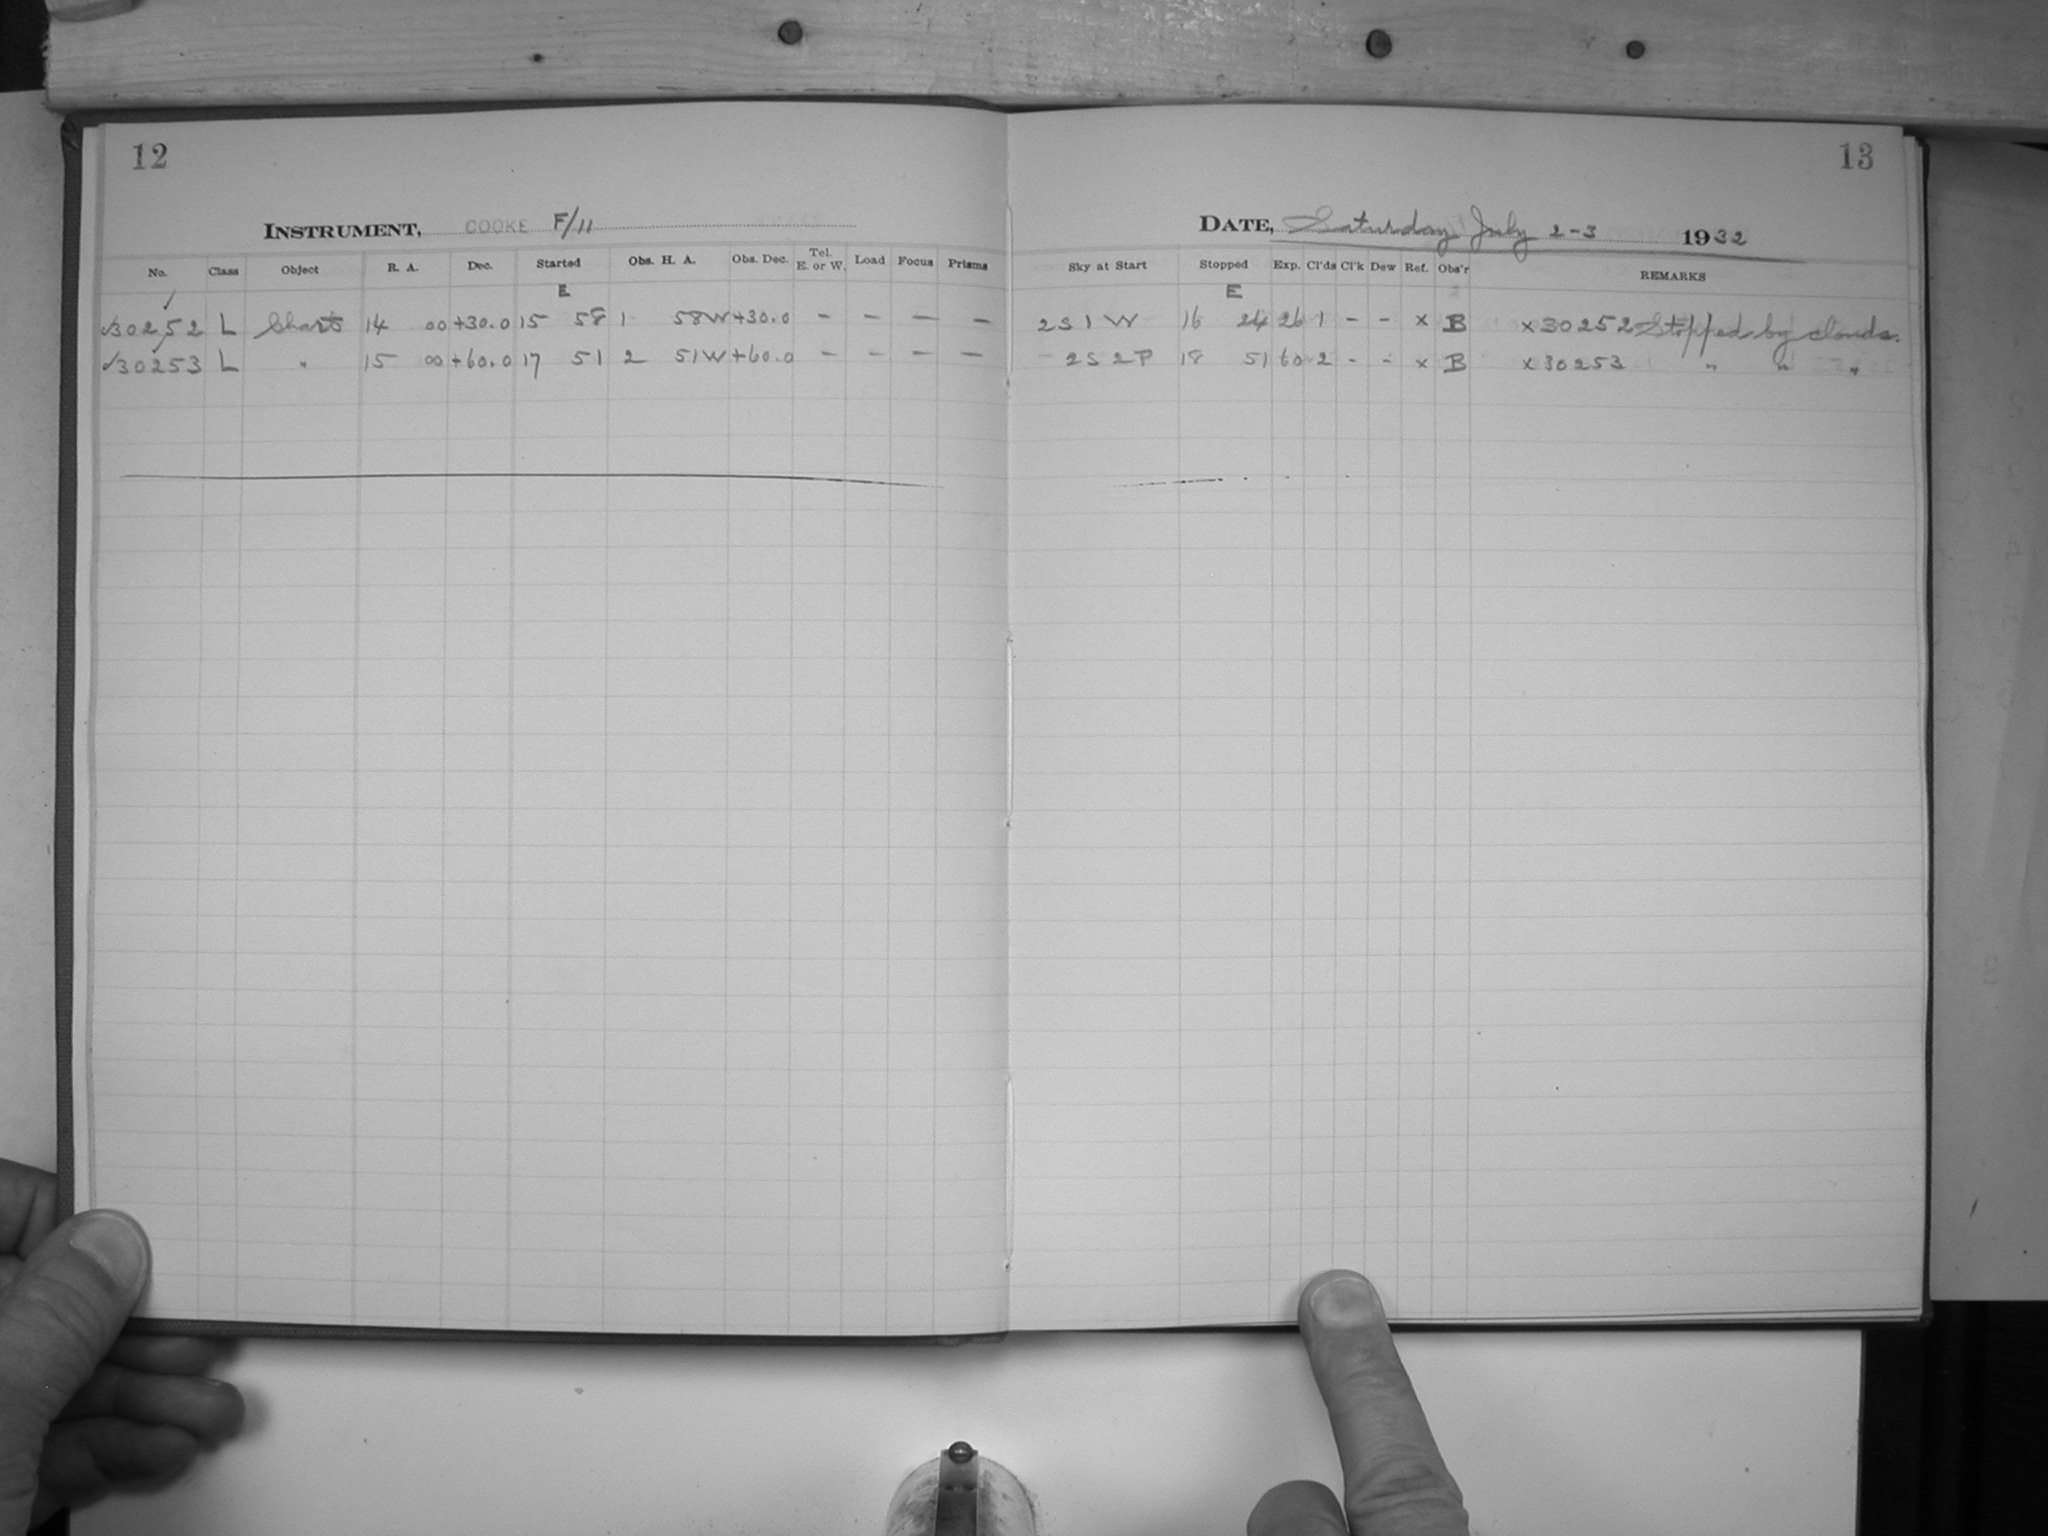 12
INSTRUMENT, COOKE F/11
No. Class Object R. A. Dec. Started Obs. H. A. Obs. Dec. Tel. E. or W. Load Focus Prisms
E
√30252 L Chart 14 00 +30.0 15 58 1 58W +30.0 - - - -
√30253 L " 15 00 +60.0 17 51 2 51W +60.0 - - - -
13
DATE, Saturday July 2-3 1932
Sky at Start Stopped Exp. Cl'ds Cl'k Dew Ref. Obs'r REMARKS
E
2S1W 16 24 26 1 - - x B x30252 Stopped by clouds.
2S2P 18 51 60 2 - - x B x30253 " " "